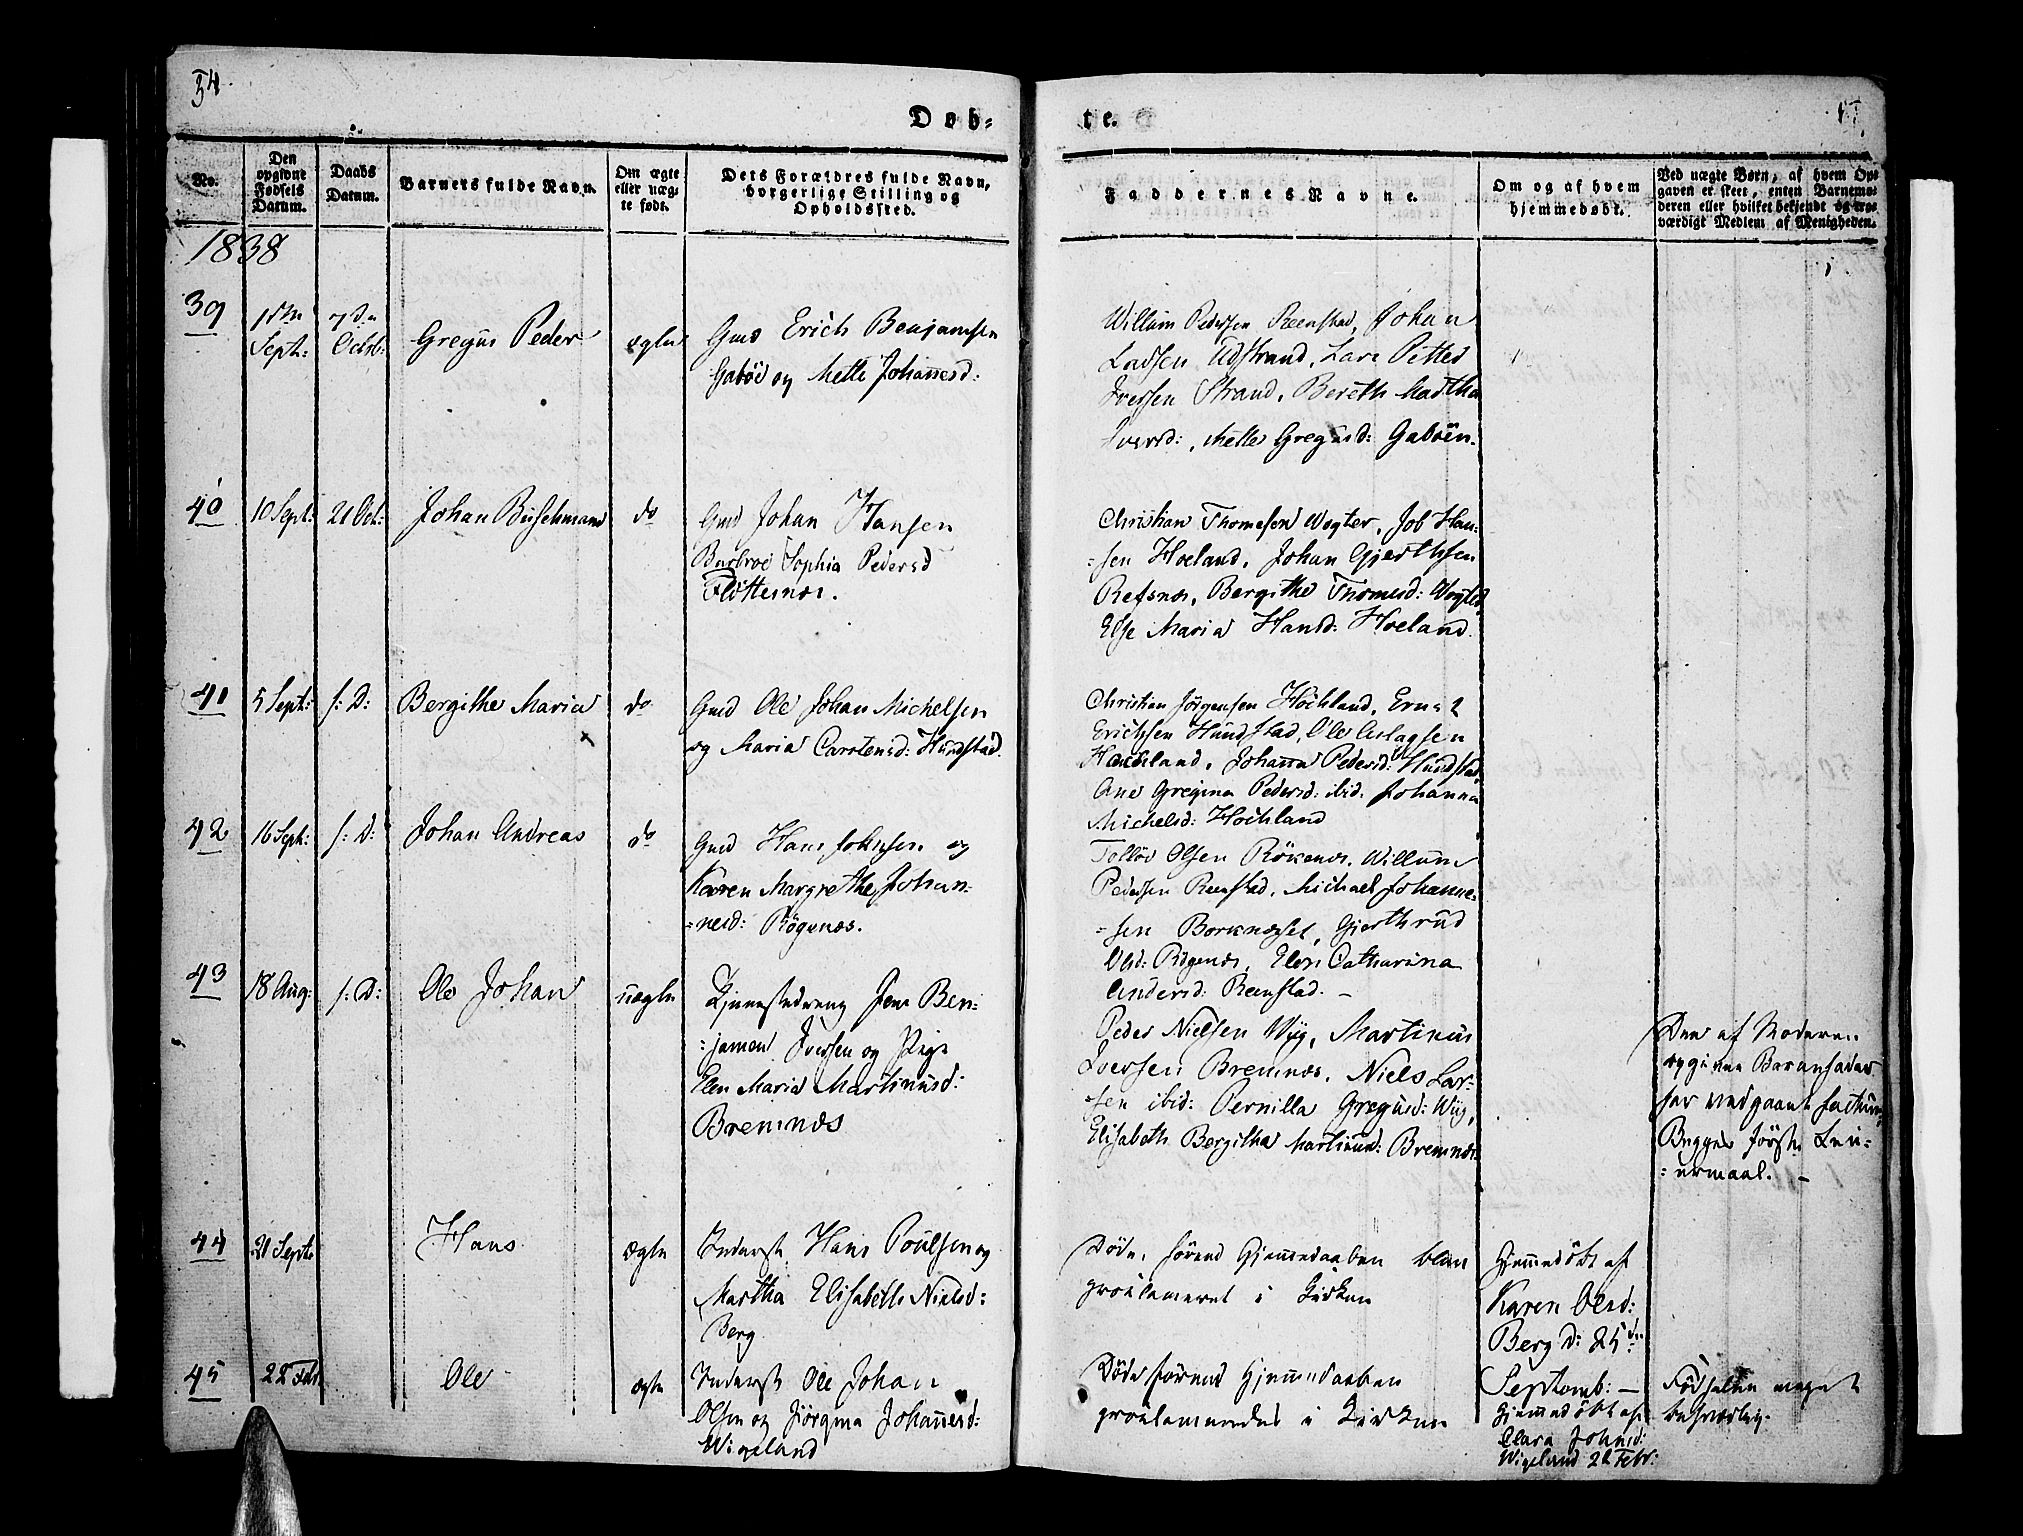 54.
Døb-
te.
No.
Den opgivne Fødsels Datum.
Daabs Datum.
Barnets fulde Navn.
Om ægte eller uæg-te født.
Dets Forældres fulde Navn, borgerlige Stilling og Opholdssted.
Faddernes Navne.
Om og af hvem hjemmedøbt.
Ved uægte Børn, af hvem Op-gaven er skeet, enten Barnemo-deren eller hvilket bekjendt og tro-værdigt Medlem af Menigheden.
1838
39
1ste
Sept:
7de
Octb:
Gregus Peder
ægte
Gmd Erich Benjamsen
Gaböe og Mette Johannesd:
Willum Pedersen Reenstad, Johan
Larsen Udstrand, Lars Petter
Iversen Strand, Bereth Martha
Iversd:, Mette Gregusd: Gaböen.
40
10 Sept:
21 Oct:
Johan Buschmann
do
Gmd Johan Hansen
Barbroe Sophia Pedersd
Flöttenæs.
Christian Thomesen Wogter, Job Han-
-sen Hoeland, Johan Gjerthsen
Refsnæs, Bergithe Thomesd: Wogter
Else Maria Hansd: Hoeland.
41
5 Sept:
s: D:
Bergithe Maria
do
Gmd Ole Johan Michelsen
og Maria Carstensd: Hundstad.
Christian Jörgensen Höchland, Ernst
Erichsen Hundstad, Ole Aslagsen
Hauchland, Johanna Pedersd: Hundstad
Ane Gregina Pedersd: ibid: Johanna
Michelsd: Höchland
42
16 Sept:
s: D:
Johan Andreas
do
Gmd Hans Johnsen og
Karen Margrethe Johan-
-nesd: Rögenæs.
Tollöv Olsen Rökenæs, Willum
Pedersen Reenstad, Michael Johanne-
-sen Borknæset, Gjerthrud
Olsd: Rögenæs, Elen Catharina
Andersd: Reenstad. —
43
18 Aug:
s: D:
Ole Johan
uægte
Tjenestedreng Jens Ben-
-jamen Iversen og Pige
Elen Maria Martinusd:
Bremnæs
Peder Nielsen Wiig, Martinus
Iversen Bremnæs, Niels Lar-
-sen ibid: Pernilla Gregusd: Wiig,
Elisabeth Bergitha Martinusd: Bremnæs.
Den af Moderen
opgivne Barnefader
har vedgaaet factum,
Begges förste Lei-
-ermaal. —
44
21 Sept:
Hans
ægte
Inderst Hans Poulsen og
Martha Elisabeth Nielsd:
Berg
Döde, förend Hjemmedaaben blev
proclameret i Kirken
Hjemmedöbt af
Karen Olsd:
Berg D: 25de
Septemb: —
45
22 Febr
Ole
ægte
Inderst Ole Johan
Olsen og Jörgina Johannesd:
Wigeland
Döde förend Hjemmedaaben
proclameredes i Kirken
Hjemmedöbt af
Clara Johnsd:
Wigeland 22 Febr:
Födselen meget
besværlig.